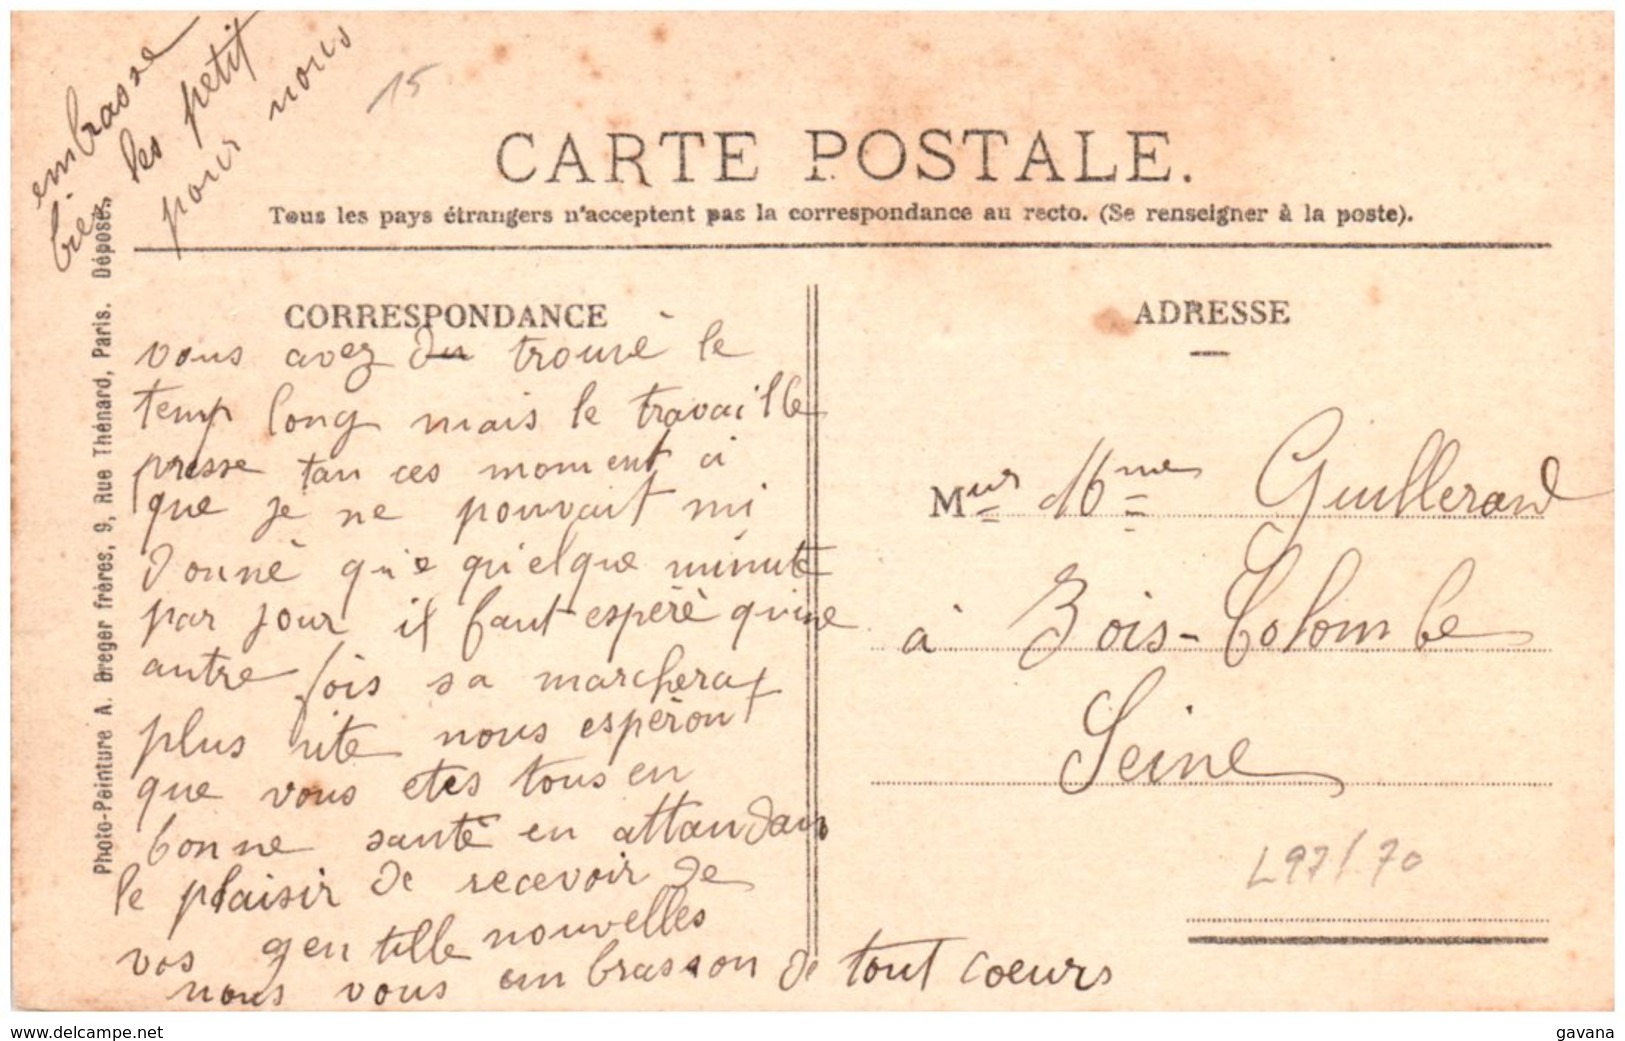 embrasse
bien les petit
pour nous
15
CARTE POSTALE.
Tous les pays étrangers n'acceptent pas la correspondance au recto. (Se renseigner à la poste).
Photo-Peinture A. Breger frères, 9, Rue Thénard, Paris. Déposé.
CORRESPONDANCE
vous avez du trouvé le
temp long mais le travaille
presse tan ces moment ci
que je ne pouvait mi
donné que quelque minute
par jour it faut espéré qu'une
autre fois sa marcherat
plus vite nous espéront
que vous etes tous en
bonne santé en attandan
le plaisir de recevoir de
vos gentille nouvelles
nous vous ambrasson de tout coeurs
ADRESSE
Meur Mme Guillerand
à Bois-Colombe
Seine
L97/70
www.delcampe.net
gavana